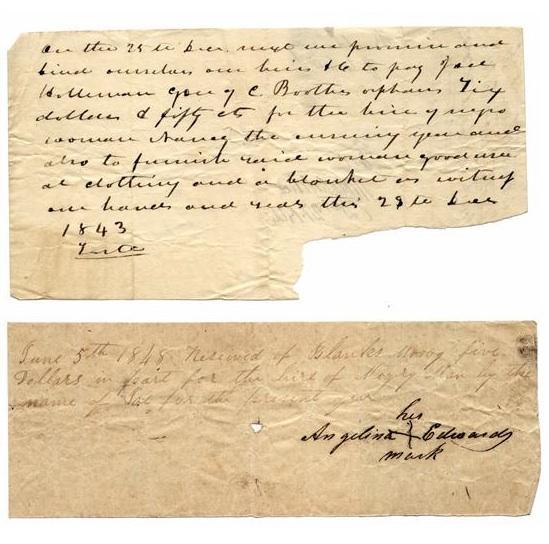 On the 25th Dec. next we promise and
bind ourselves our heirs &c to pay
Holleman Gdn of C. Boothes orphans Six
dollars & fifty cts for the hire of negro
woman Nancy the ensuing year and
also to furnish said woman good usu
al clothing and a blanket as witness
our hands and seals this 28th Dec
1843
Teste
June 5th 1848 Received of Blanks Moody five
Dollars in part for the hire of Negro Man by the
name of for the present year
her
Angelina Edwards
mark